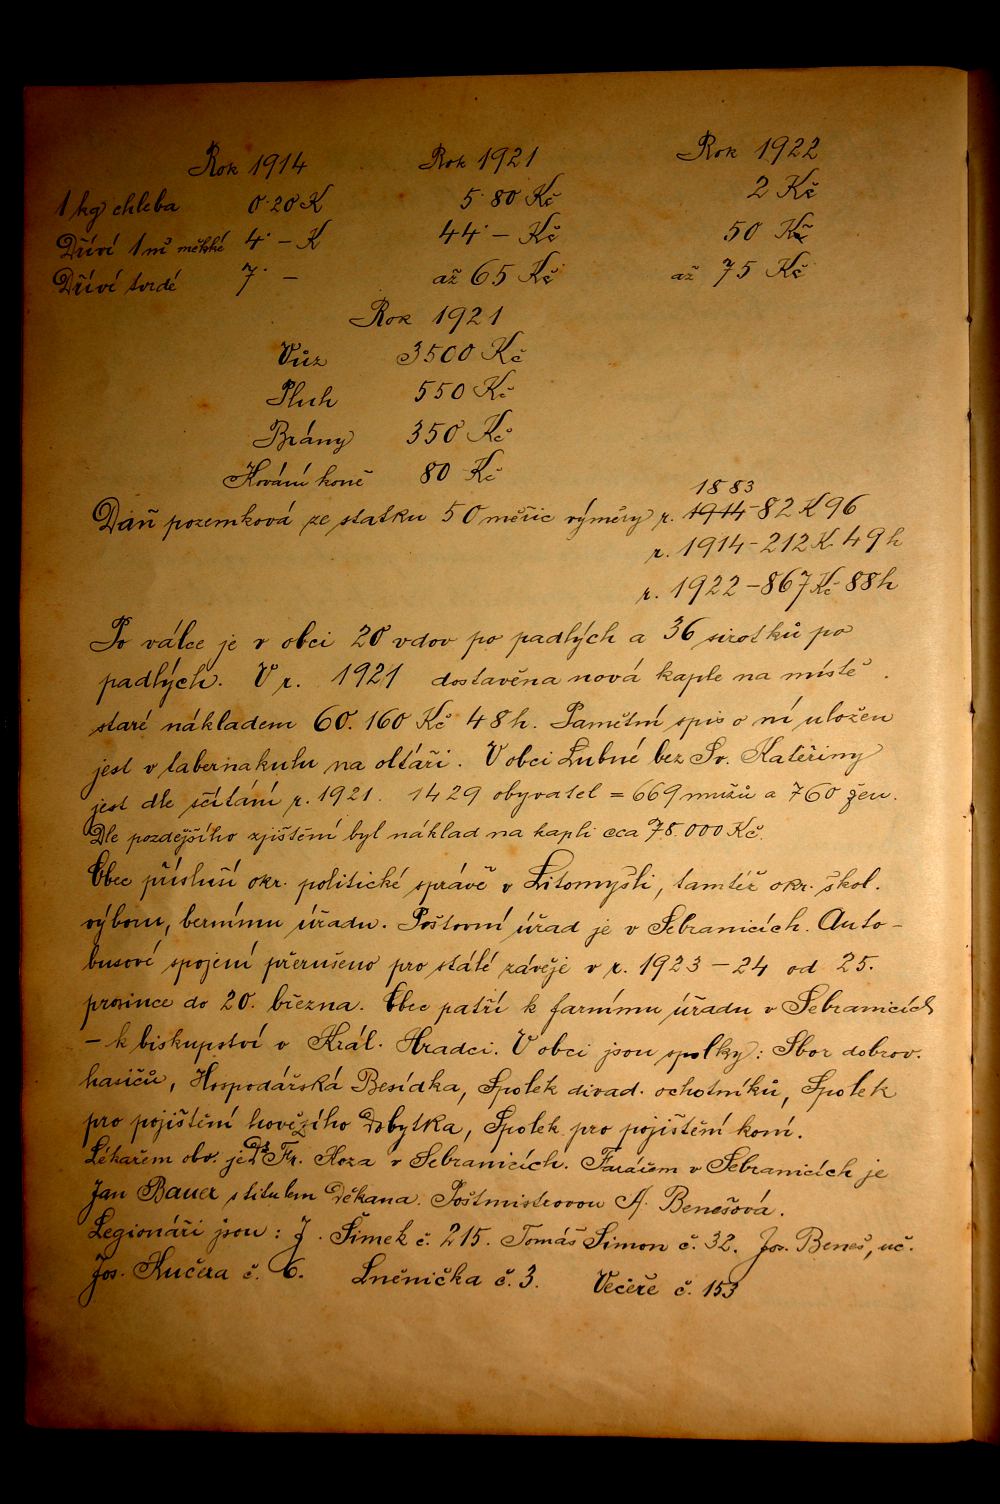 Rok 1914 Rok 1921 Rok 1922
1 kg chleba 0·20 K 5·80 Kč 2 Kč
Dříví 1 m³ měkké 4·– K 44·– Kč 50 Kč
Dříví tvrdé 7·– až 65 Kč až 75 Kč
Rok 1921
Vůz 3500 Kč
Pluh 550 Kč
Brány 350 Kč
Kování koně 80 Kč
1883
Daň pozemková ze statku 50 měřic výměry r. 1914 – 82 K 96
r. 1914 – 212 K 49 h
r. 1922 – 867 Kč 88 h
Po válce je v obci 20 vdov po padlých a 36 sirotků po
padlých. V r. 1921 dostavěna nová kaple na místě
staré nákladem 60.160 Kč 48 h. Pamětní spis o ní uložen
jest v tabernakulu na oltáři. V obci Lubné bez Sv. Kateřiny
jest dle sčítání r. 1921. 1429 obyvatel = 669 mužů a 760 žen.
Dle pozdějšího zjištění byl náklad na kapli cca 78.000 Kč.
Obec přísluší okr. politické správě v Litomyšli, tamtéž okr. škol.
výboru, bernímu úřadu. Poštovní úřad je v Sebranicích. Auto-
busové spojení přerušeno pro stálé závěje v r. 1923 – 24 od 25.
prosince do 20. března. Obec patří k farnímu úřadu v Sebranicích
– k biskupství v Král. Hradci. V obci jsou spolky: Sbor dobrov.
hasičů, Hospodářská Besídka, Spolek divad. ochotníků, Spolek
pro pojištění hovězího dobytka, Spolek pro pojištění koní.
Lékařem obv. je Dr Fr. Hoza v Sebranicích. Farářem v Sebranicích je
Jan Bauer s titulem Děkana. Poštmistrovou A. Benešová.
Legionáři jsou: J. Šimek č. 215. Tomáš Šimon č. 32. Jos. Beneš, uč.
Jos. Kučera č. 6. Lněnička č. 3. Večeře č. 153